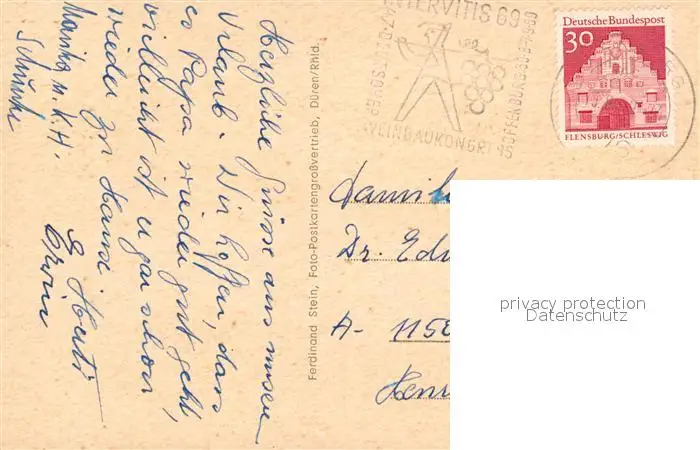 Herzliche Grüsse aus unserem
Urlaub. Wir hoffen, dass
es Papa wieder gut geht,
vielleicht ist er gar schon
wieder zu Hause
Erwin
Monika u. K.H.
Ferdinand Stein, Foto-Postkartengroßvertrieb, Düren/Rhld.
INTERVITIS 69
WEINBAUKONGR
OFFENBURG
Deutsche Bundespost
30
FLENSBURG/SCHLESWIG
Familie
Dr. Edu
A- 1150
privacy protection
Datenschutz